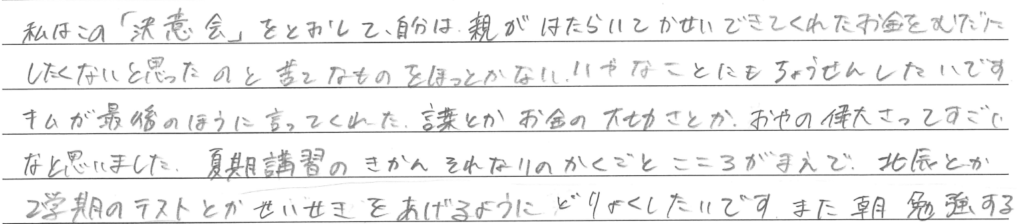 私はこの「決意会」をとおして、自分は、親がはたらいてかせいできてくれたお金をむだに
したくないと思ったのと苦てなものをほっとかない、いやなことにもちょうせんしたいです
キムが最後のほうに言ってくれた、言葉とかお金の大切さとか、おやの偉大さってすごい
なと思いました。夏期講習のきかんそれなりのかくごとこころがまえで、北辰とか
2学期のテストとかせいせきをあげるようにどりょくしたいです。また朝勉強する